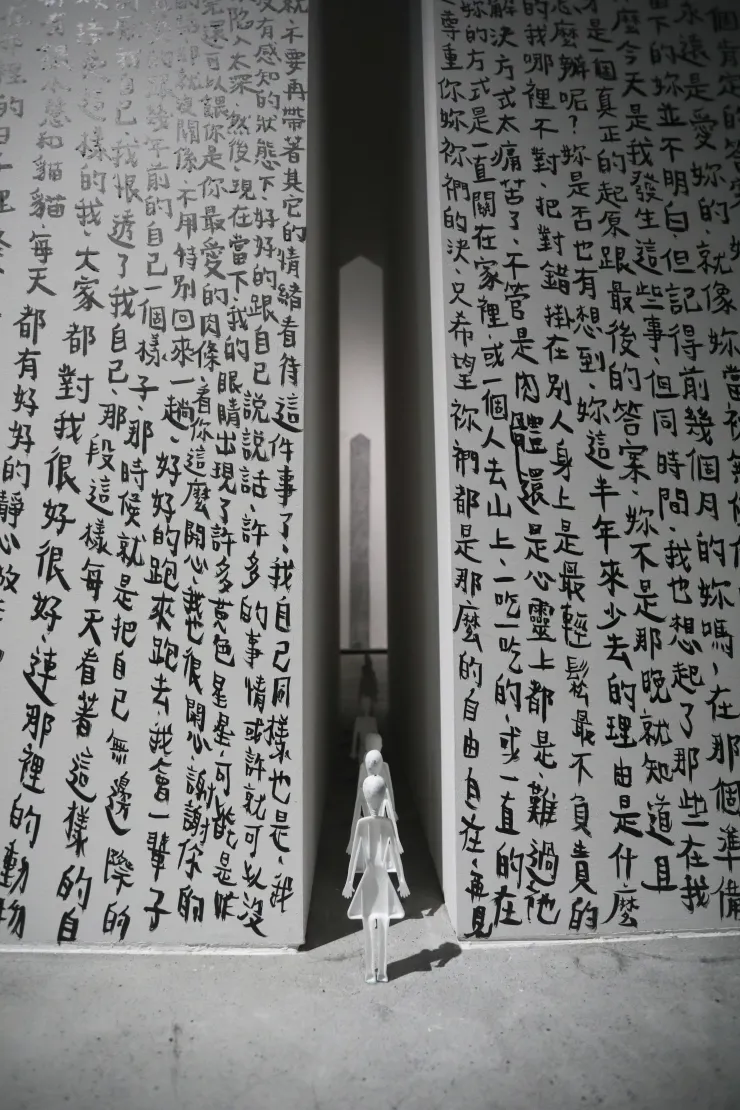 個肯定的答案
永遠是愛妳的、就像妳當
下的妳並不明白、但記得前幾個月的妳嗎、在那個準備
麼今天是我發生這些事、但同時間、我也想起了那些在我
才是一個真正的起原跟最後的答案、妳不是那晚就知道且
怎麼辦呢？妳是否也有想到、妳這半年來少去的理由是什麼
的我哪裡不對、把對錯掛在別人身上是最輕鬆最不負責的
解決方式太痛苦了、不管是肉體還是心靈上都是、難過地
妳的方式是一直關在家裡、或一個人去山上、一吃一吃的、或一直的在
尊重你妳祢們的決、只希望祢們都是那麼的自由自在、再見
就不要再帶著其它的情緒看待這件事了、我自己同樣也是、我
沒有感知的狀態下、好好的跟自己說說話、許多的事情或許就可以沒
陷入太深、然後、現在當下、我的眼睛出現了許多黃色星星、可能是昨
還可以讓你是你最愛的肉條、看你這麼開心、我也很開心、謝謝你的
就沒關係、不用特別回來一趟、好好的跑來跑去、我會一輩子
年前的自己一個樣子、那時候就是把自己無邊際的
自己、我恨透了我自己、那段這樣每天看著這樣的自
這樣的我、大家都對我很好很好、連那裡的動物
和貓貓、每天都有好好的靜心放
裡的日子裡